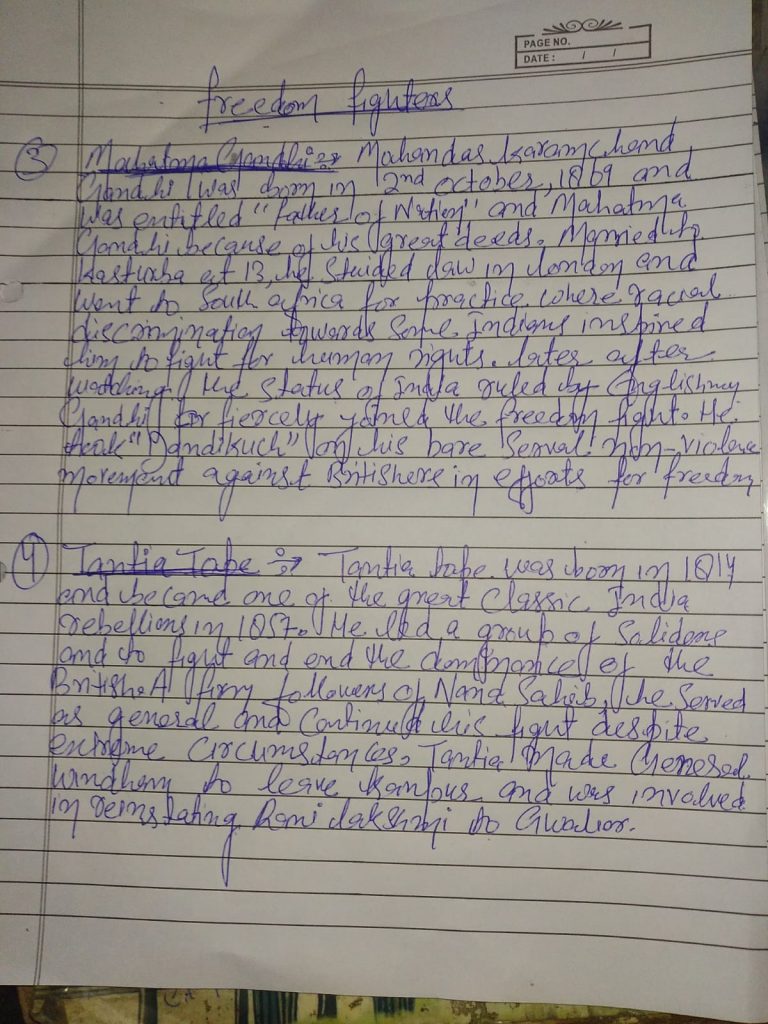 PAGE NO.
DATE : / /
freedom fighters
3 Mahatma Gandhi :→ Mahandas Karamchand
Gandhi was born in 2nd october, 1869 and
was entitled "father of Nation" and Mahatma
Gandhi because of his great deeds. Married to
Kasturba at 13, he studied law in london and
went to South africa for practice where racial
discrimination towards some Indians inspired
him to fight for human rights. later after
watching the status of India ruled by Englishmen
Gandhi fiercely joined the freedom fight. He
"Dandikuch" on his bare Serval non-violence
movement against Britishers in efforts for freedom
4 Tantia Tope :→ Tantia tope was born in 1814
and became one of the great Classic India
rebellions in 1857. He led a group of Solidens
and to fight and end the dominance of the
British. A firm followers of Nana Sahib, he Served
as general and Continued his fight despite
extreme circumstances. Tantia Made General
Windham to leave Kanpur and was involved
in reinstating Rani lakshmi to Gwalior.